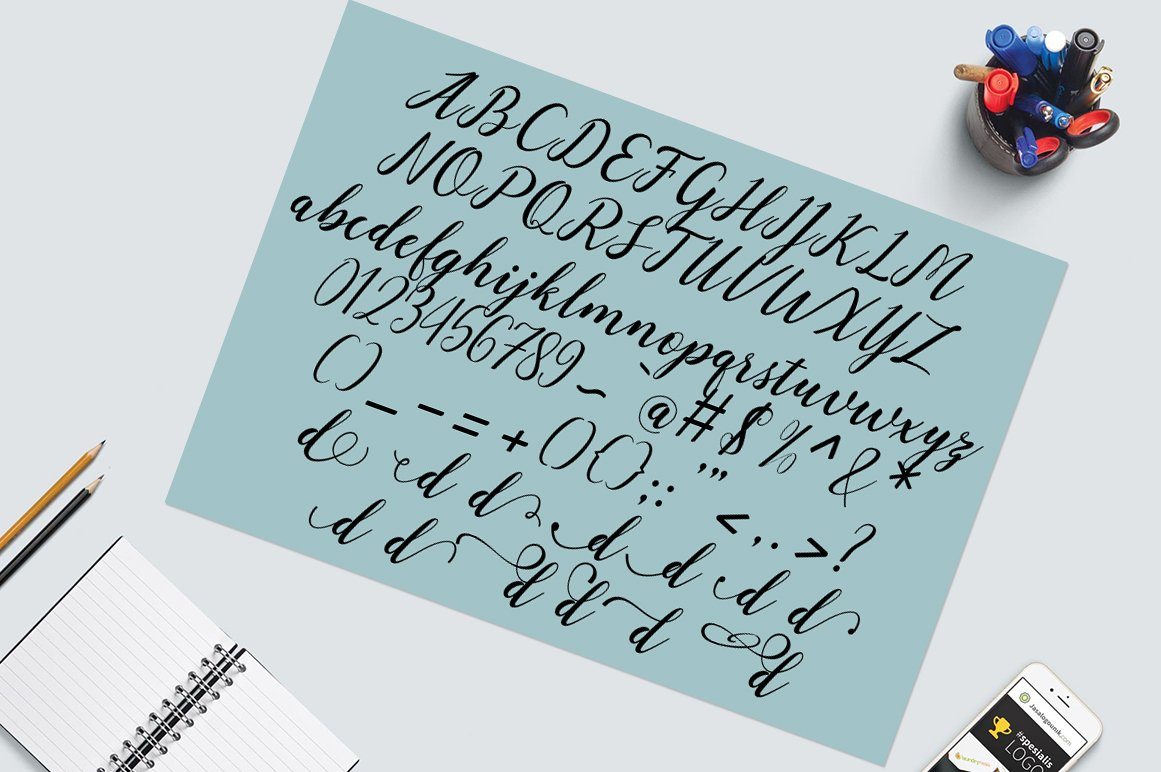 ABCDEFGHIJKLM
NOPQRSTUVWXYZ
abcdefghijklmnopqrstuvwxyz
0123456789~`@#$%^&*
()_-=+(){};:'",<..>?
d d d d d d d
d d d d d d
Jasalogounik.com
#spesialis
LOGO
laundryman